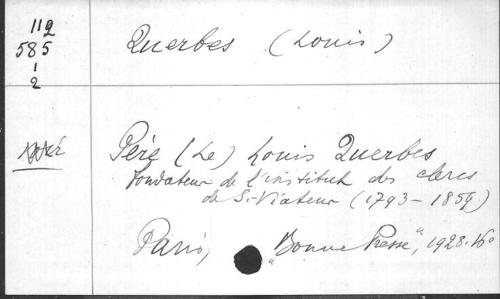 112
585
1
2
Querbes (Louis)
Père (Le) Louis Querbes
fondateur de l'institut des clercs
de S.-Viateur (1793-1859)
Paris, "Bonne Presse", 1928. 16°